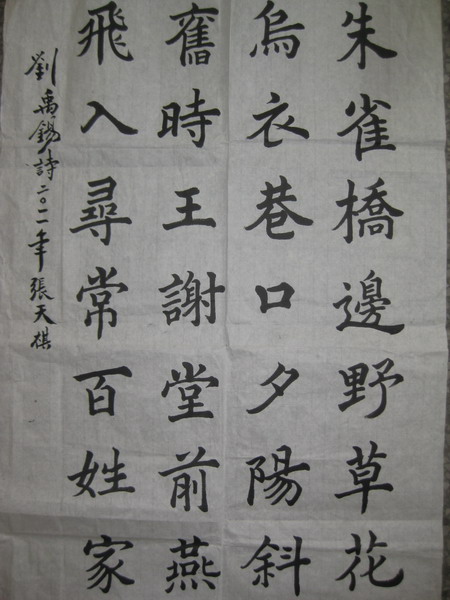 朱雀橋邊野草花
烏衣巷口夕陽斜
舊時王謝堂前燕
飛入尋常百姓家
劉禹錫詩二〇一一年張天棋